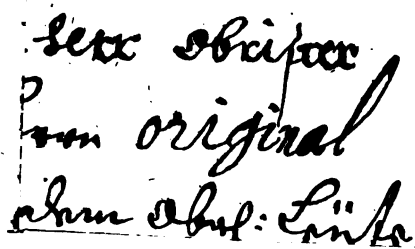 herr obrister
von original
dem obr: Leüte